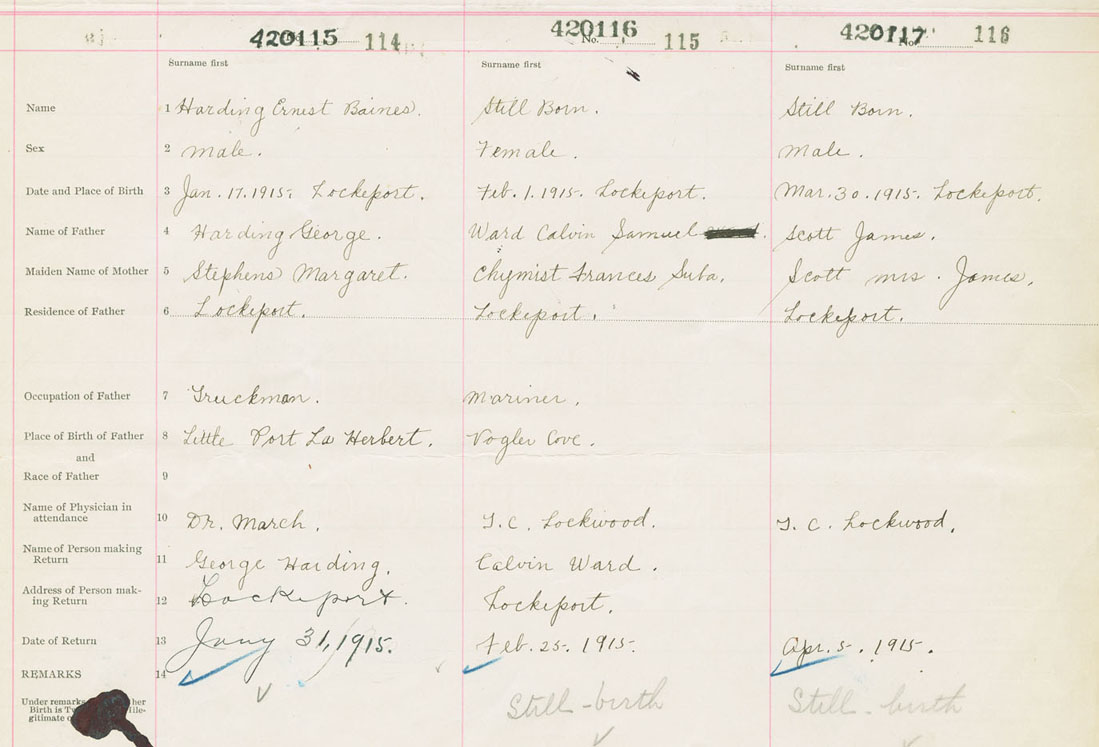 420115 114 420116 No. 115 420117 No. 116
Surname first Surname first Surname first
Name 1 Harding Ernest Baines. Still Born. Still Born.
Sex 2 Male. Female. Male.
Date and Place of Birth 3 Jan. 17. 1915. Lockeport. Feb. 1. 1915. Lockeport. Mar. 30. 1915. Lockeport.
Name of Father 4 Harding George. Ward Calvin Samuel Scott James.
Maiden Name of Mother 5 Stephens Margaret. Chymist Frances Suba. Scott Mrs. James.
Residence of Father 6 Lockeport. Lockeport. Lockeport.
Occupation of Father 7 Truckman. Mariner.
Place of Birth of Father 8 Little Port La Herbert. Vogler Cove.
and
Race of Father 9
Name of Physician in
attendance 10 Dr. March. T. C. Lockwood. T. C. Lockwood.
Name of Person making
Return 11 George Harding. Calvin Ward.
Address of Person mak-
ing Return 12 Lockeport. Lockeport.
Date of Return 13 Jany 31, 1915. Feb. 25. 1915. Apr. 5. 1915.
REMARKS 14
Under remarks
Birth is
gitimate
Still-birth Still-birth